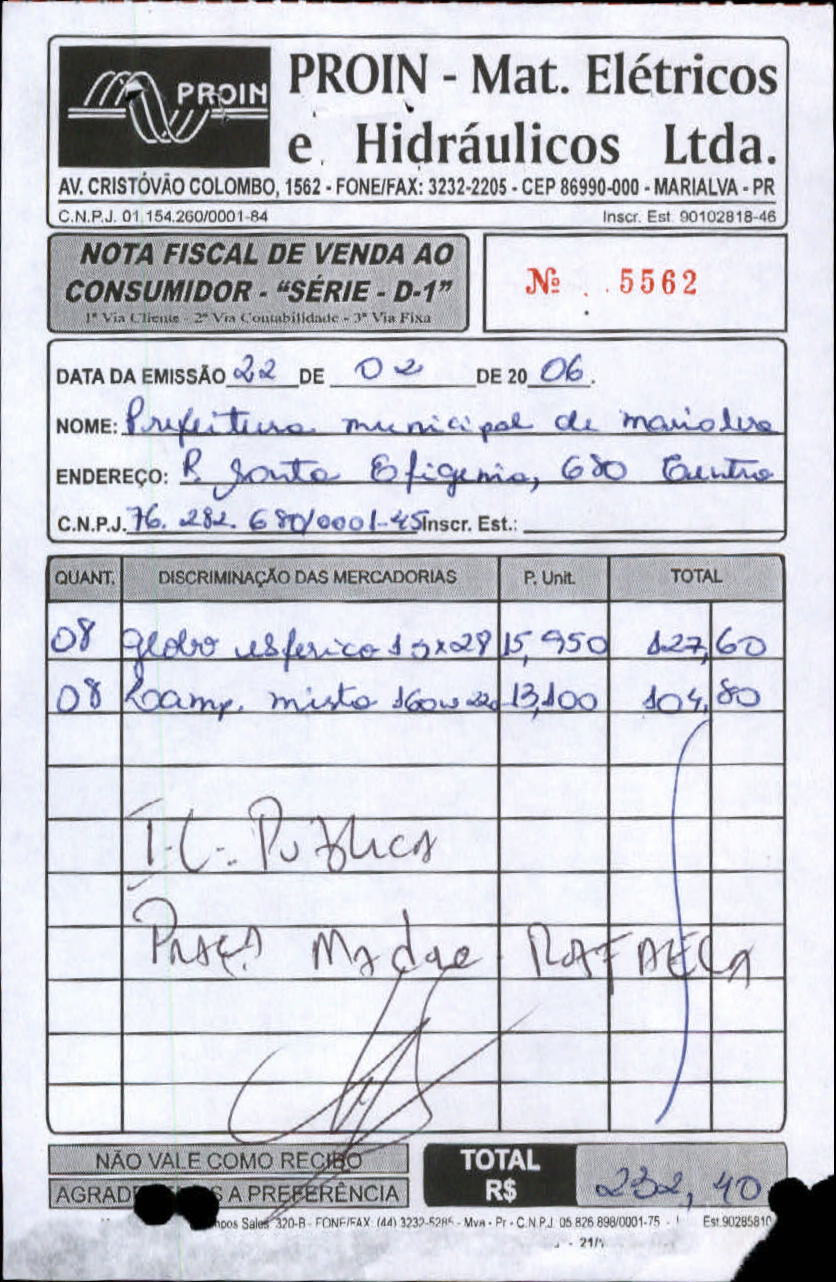 PROIN
PROIN - Mat. Elétricos
e Hidráulicos Ltda.
AV. CRISTÓVÃO COLOMBO, 1562 - FONE/FAX: 3232-2205 - CEP 86990-000 - MARIALVA - PR
C.N.P.J. 01.154.260/0001-84 Inscr. Est. 90102818-46
NOTA FISCAL DE VENDA AO
CONSUMIDOR - “SÉRIE - D-1”
1ª Via Cliente - 2ª Via Contabilidade - 3ª Via Fixa
Nº 5562
DATA DA EMISSÃO 22 DE 02 DE 20 06.
NOME: Prefeitura municipal de marialva
ENDEREÇO: R Santa Efigenia, 680 Centro
C.N.P.J. 76.282.680/0001-45 Inscr. Est.:
QUANT. DISCRIMINAÇÃO DAS MERCADORIAS P. Unit. TOTAL
08 Globo esferico 15x28 15,950 127,60
08 Lamp. mista 160w 220 13,100 104,80
I-L. Publica
Praça Madre RAFAELA
NÃO VALE COMO RECIBO
AGRAD S A PREFERÊNCIA
TOTAL
R$ 232,40
pos Sales 320-B - FONE/FAX: (44) 3232-5285 - Mva - Pr - C.N.P.J. 05.826.898/0001-75 - Est.90285810
- 21/